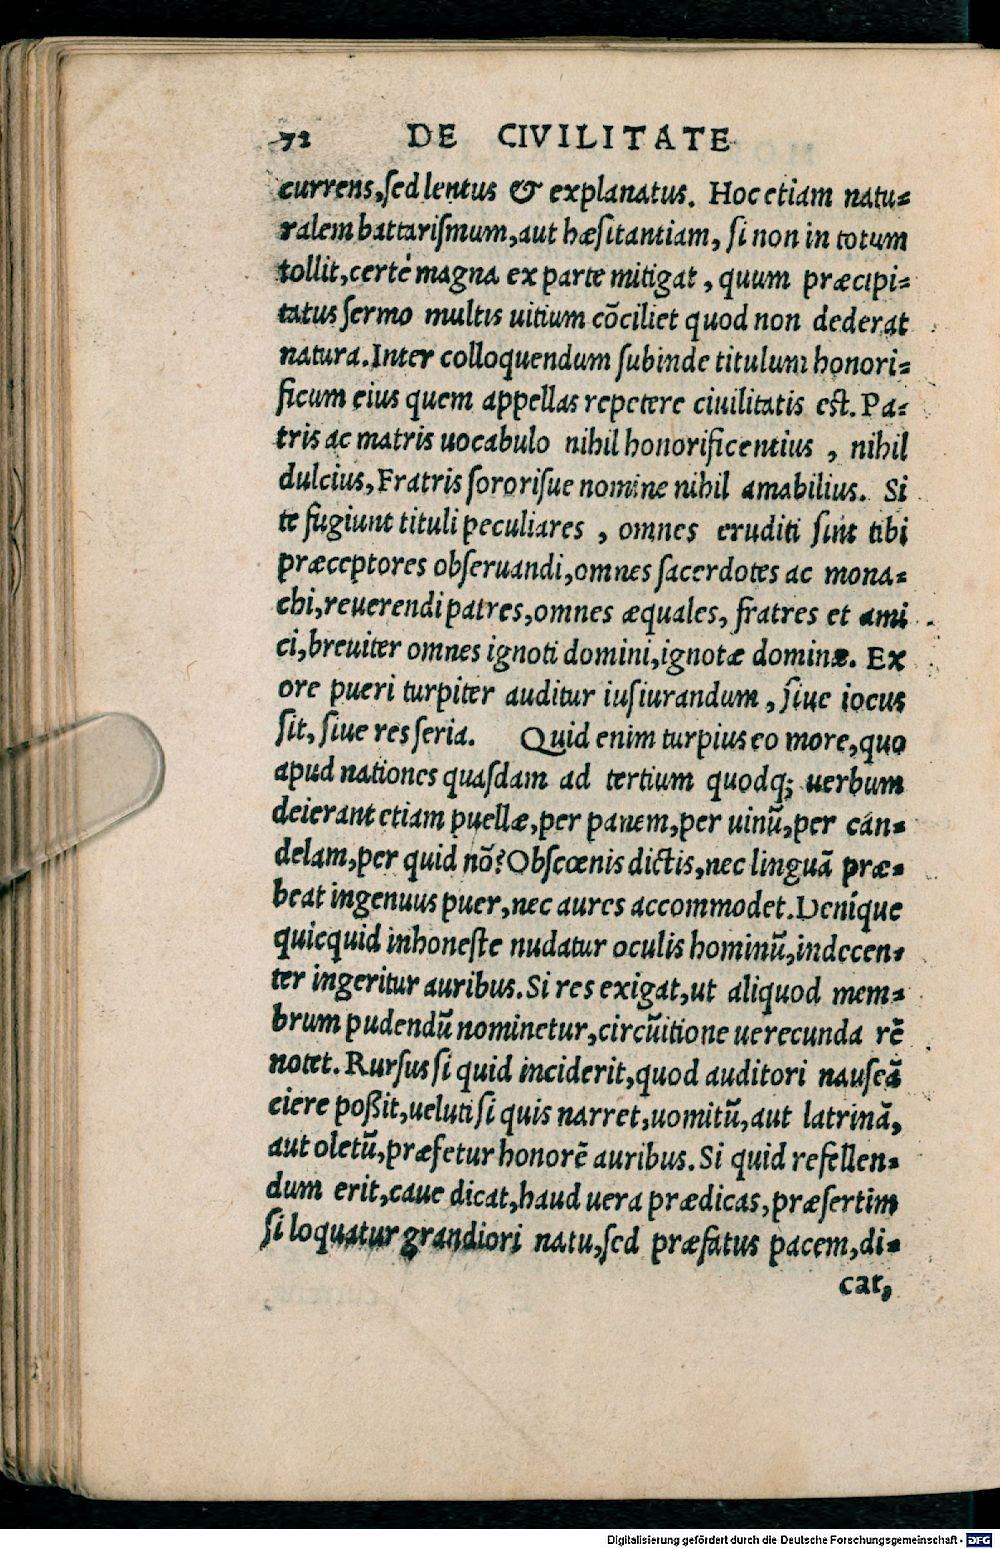 72 DE CIVILITATE
currens, sed lentus & explanatus. Hoc etiam natu⸗
ralem battarismum, aut hæsitantiam, si non in totum
tollit, certè magna ex parte mitigat, quum præcipi⸗
tatus sermo multis uitium cõciliet quod non dederat
natura. Inter colloquendum subinde titulum honori⸗
ficum eius quem appellas repetere ciuilitatis est. Pa⸗
tris ac matris uocabulo nihil honorificentius, nihil
dulcius, Fratris sororisue nomine nihil amabilius. Si
te fugiunt tituli peculiares, omnes eruditi sint tibi
præceptores obseruandi, omnes sacerdotes ac mona⸗
chi, reuerendi patres, omnes æquales, fratres et ami
ci, breuiter omnes ignoti domini, ignotæ dominæ. Ex
ore pueri turpiter auditur iusiurandum, siue iocus
sit, siue res seria. Quid enim turpius eo more, quo
apud nationes quasdam ad tertium quodq; uerbum
deierant etiam puellæ, per panem, per uinũ, per can⸗
delam, per quid nõ? Obscœnis dictis, nec linguã præ⸗
beat ingenuus puer, nec aures accommodet. Denique
quicquid inhoneste nudatur oculis hominũ, indecen⸗
ter ingeritur auribus. Si res exigat, ut aliquod mem⸗
brum pudendũ nominetur, circũitione uerecunda rẽ
notet. Rursus si quid inciderit, quod auditori nauseã
ciere poßit, ueluti si quis narret, uomitũ, aut latrinã,
aut oletũ, præfetur honorẽ auribus. Si quid refellen⸗
dum erit, caue dicat, haud uera prædicas, præsertim
si loquatur grandiori natu, sed præfatus pacem, di⸗
cat,
Digitalisierung gefördert durch die Deutsche Forschungsgemeinschaft - DFG